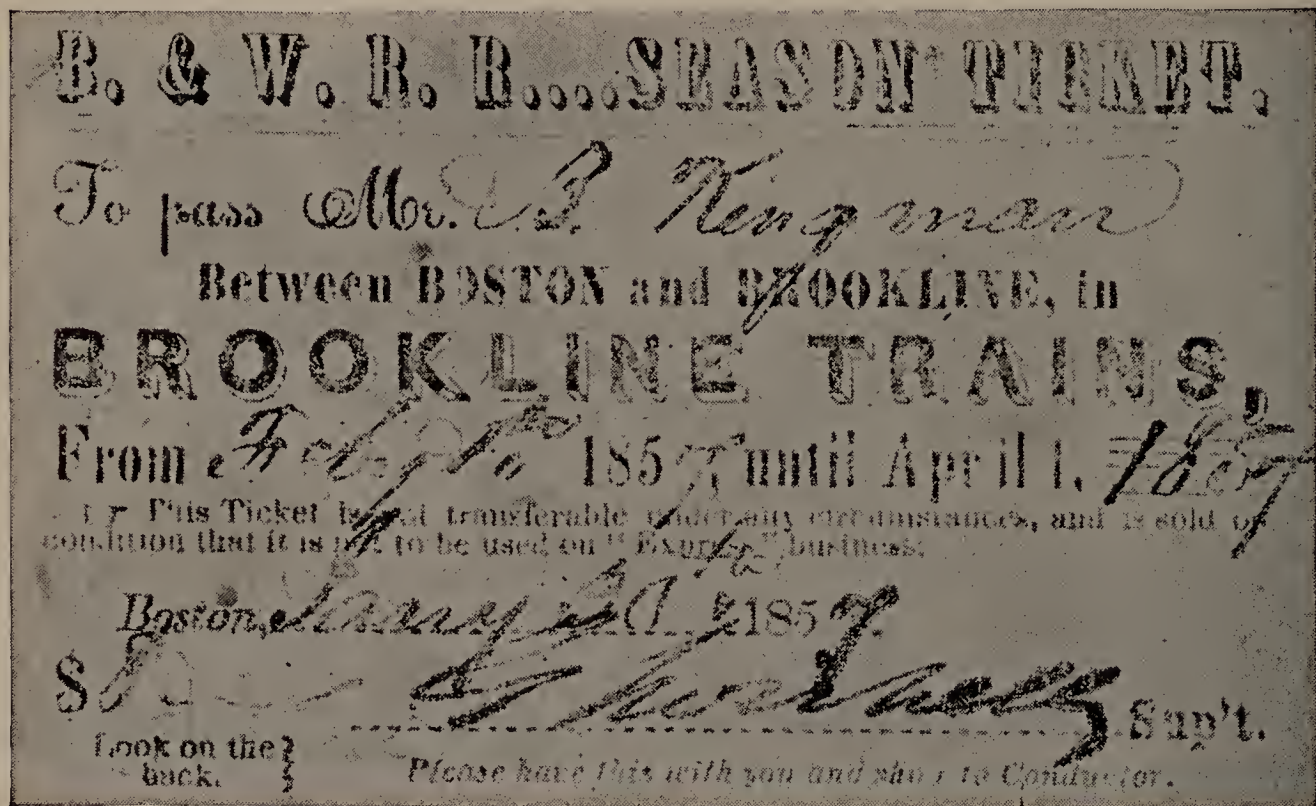 B. & W. R. R....SEASON TICKET.
To pass Mr. B Kingman
Between BOSTON and BROOKLINE, in
BROOKLINE TRAINS,
From Feby 1857 until April 1. 1857
This Ticket is not transferable under any circumstances, and is sold on
condition that it is not to be used on "Express" business.
Boston, 1857.
$ Sup't.
Look on the
back.
Please have this with you and show to Conductor.